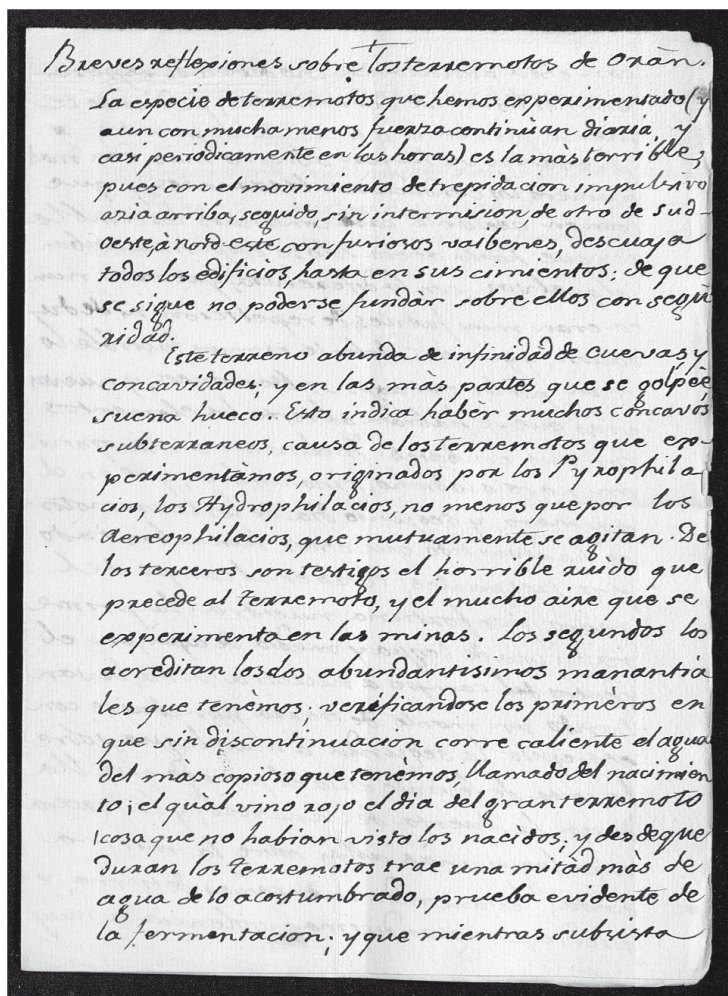 †
Breves reflexiones sobre los terremotos de Oràn.
La especie de terremotos que hemos experimentado (y
aun con mucha menos fuerza continùan diaria, y
casi periodicamente en las horas) es la màs terrible,
pues con el movimiento de trepidacion impulsivo
azia arriba, seguido, sin intermision, de otro de Sud-
oeste, à nord-este, con furiosos vaibenes, descuaja
todos los edificios, hasta en sus cimientos; de que
se sigue no poderse fundar sobre ellos con segù
ridad.
Este terreno abunda de infinidad de cuevas, y
concavidades; y en las màs partes que se golpèe,
suena hueco. Esto indica habèr muchos concavos
subterraneos, causa de los terremotos que ex-
perimentàmos, originados por los Pyrophila
cios, los Hydrophilacios, no menos que por los
Aereophilacios, que mutuamente se agitan. De
los terceros son testigos el horrible ruido que
precede al terremoto, y el mucho aire que se
experimenta en las minas. Los segundos los
acreditan los dos abundantisimos manantia
les que tenèmos; verificandose los primèros en
que sin discontinuacion corre caliente el agua
del màs copioso que tenèmos, llamado del nacimien
to; el quàl vino rojo el dia del gran terremoto
(cosa que no habian visto los nacidos; y desde que
duran los terremotos trae una mitàd màs de
agua de lo acostumbrado, prueba evidente de
la fermentacion; y que mientras subsista